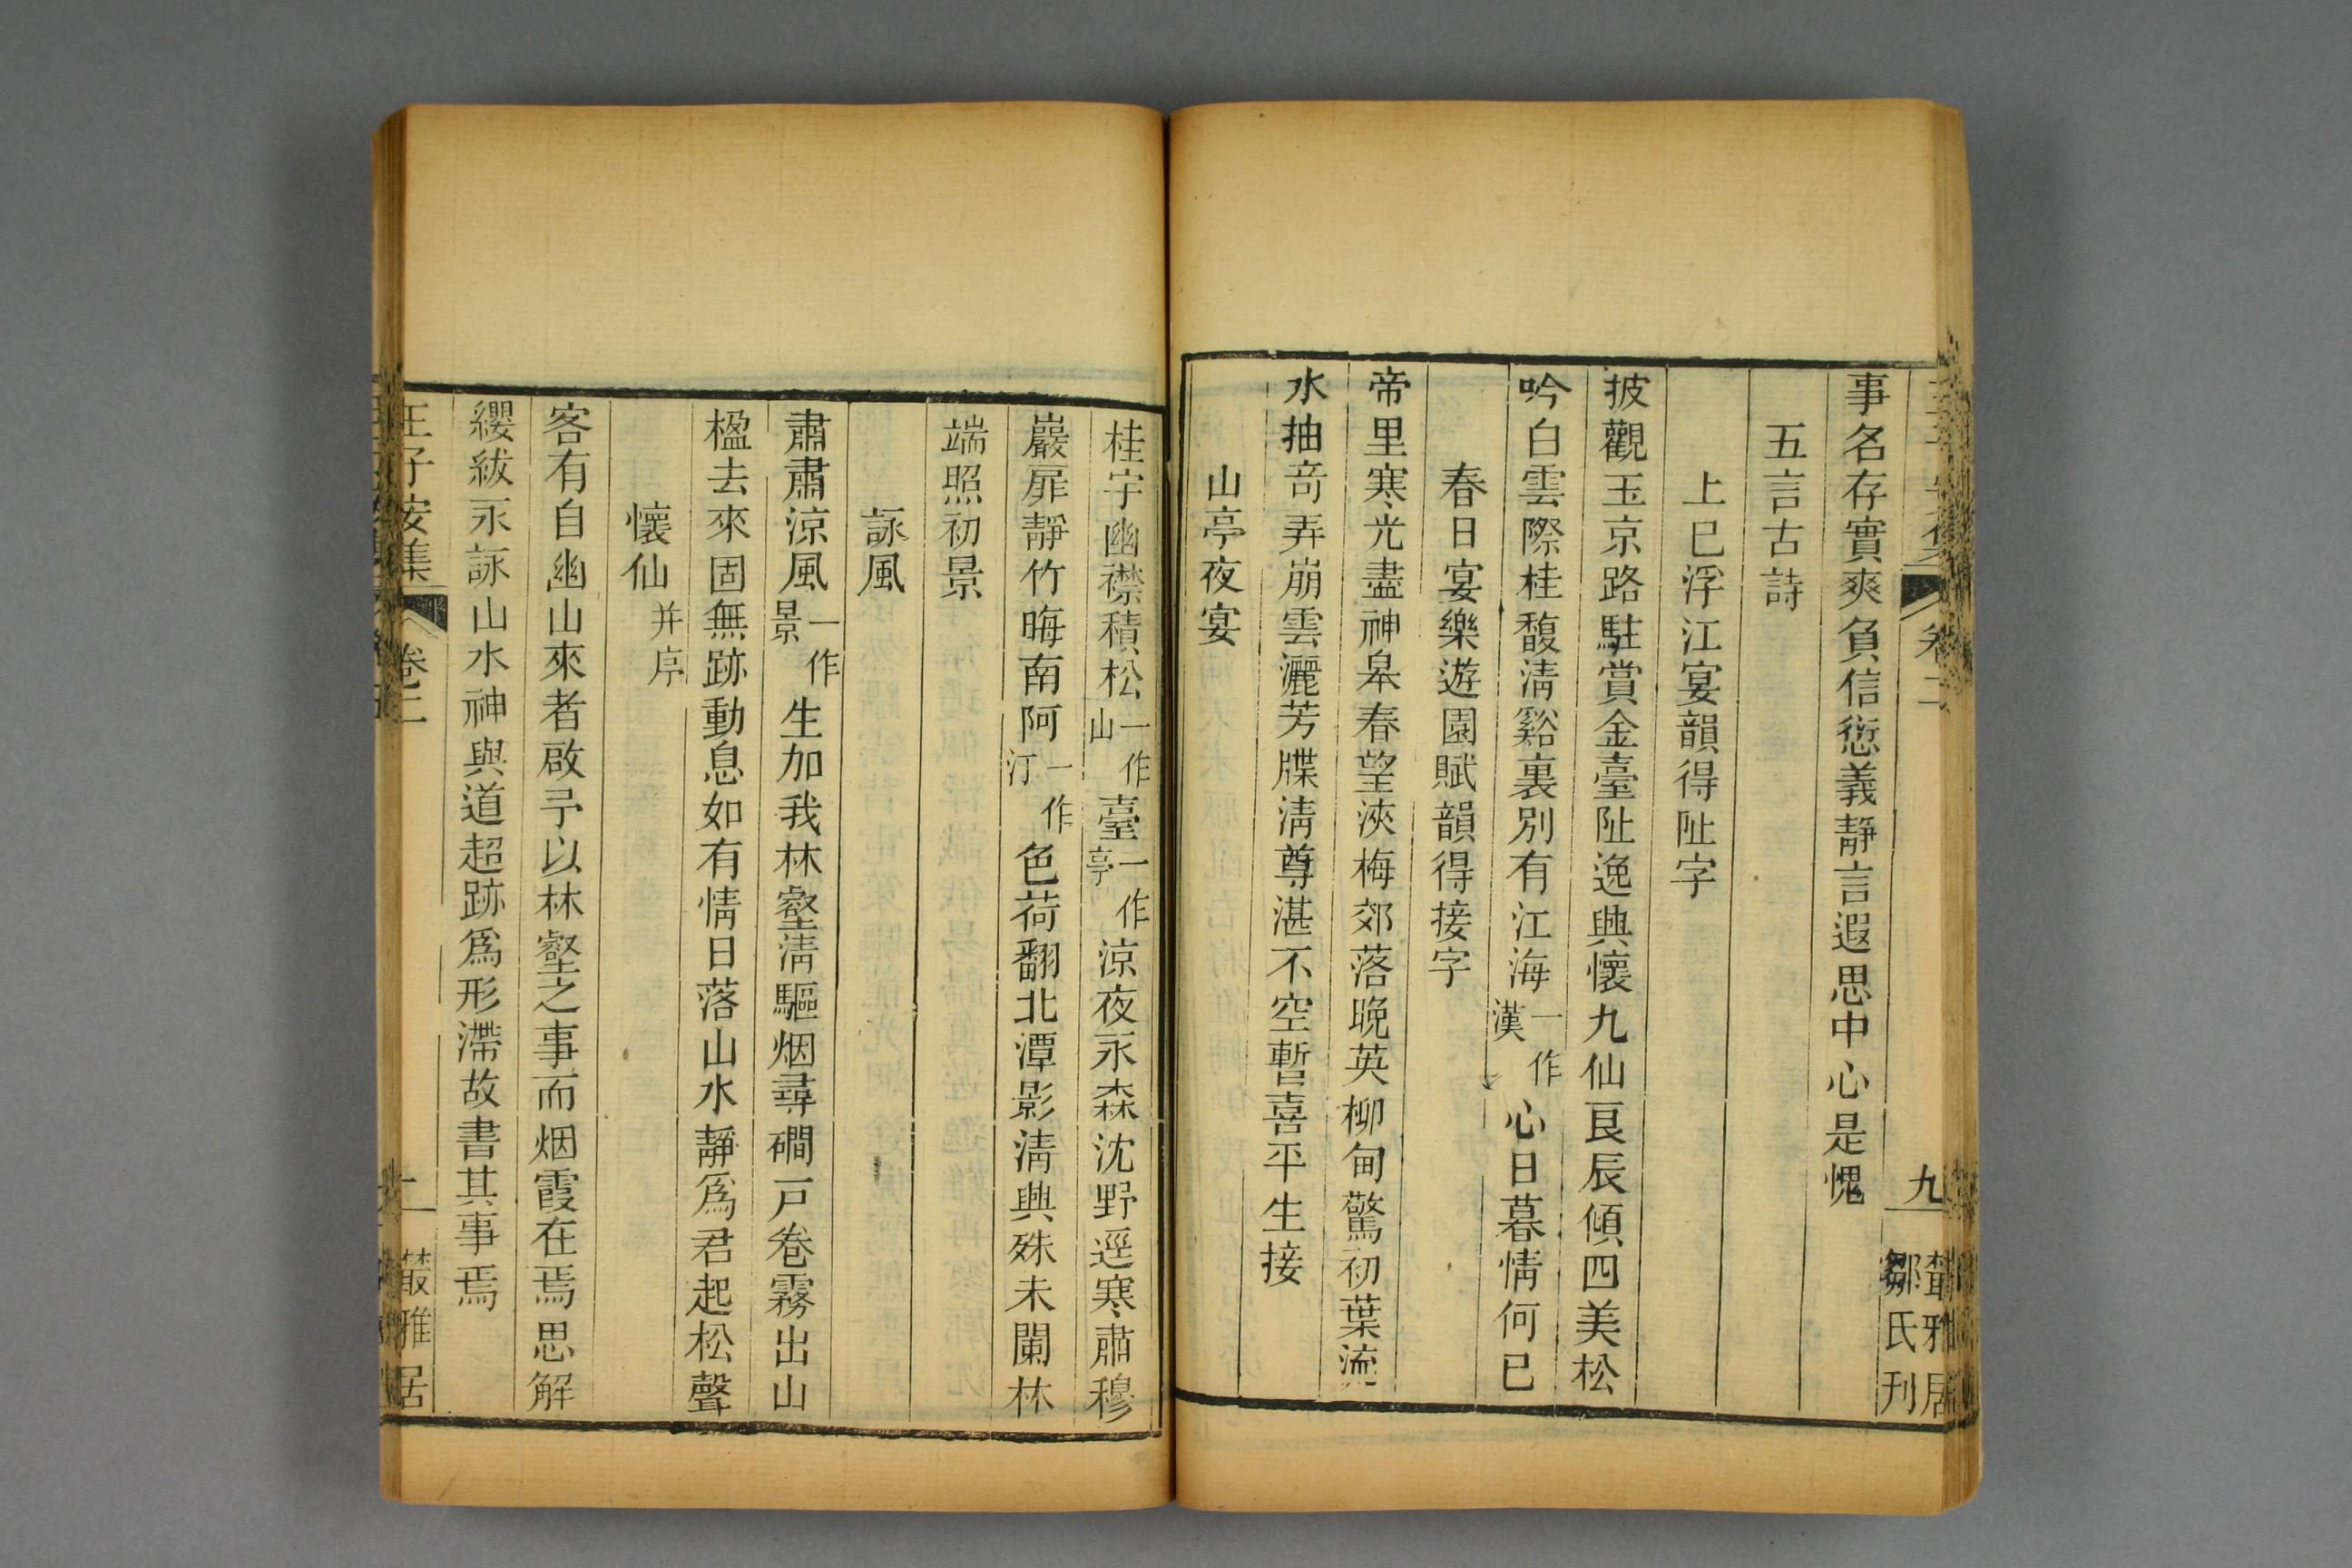 王子安集 卷二 九 叢雅居鄒氏刊
事名存實爽負信愆義靜言遐思中心是愧
五言古詩
上巳浮江宴韻得阯字
披觀玉京路駐賞金臺阯逸興懷九仙良辰傾四美松
吟白雲際桂馥清谿裏別有江海一作漢心日暮情何已
春日宴樂遊園賦韻得接字
帝里寒光盡神皋春望浹梅郊落晚英柳甸驚初葉流
水抽奇弄崩雲灑芳牒清尊湛不空暫喜平生接
山亭夜宴
桂宇幽襟積松一作山臺一作亭涼夜永森沈野逕寒肅穆
巖扉靜竹晦南阿一作汀色荷翻北潭影清興殊未闌林
端照初景
詠風
肅肅涼風一作景生加我林壑清驅烟尋磵戸卷霧出山
楹去來固無跡動息如有情日落山水靜爲君起松聲
懷仙并序
客有自幽山來者啟予以林壑之事而烟霞在焉思解
纓紱永詠山水神與道超跡爲形滯故書其事焉
王子安集 卷二 叢雅居